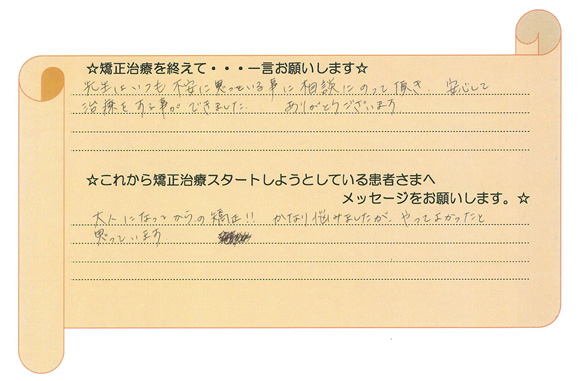 ☆矯正治療を終えて・・・一言お願いします☆
先生はいつも不安に思っている事に相談にのって頂き、安心して
治療をする事ができました。 ありがとうございます
☆これから矯正治療スタートしようとしている患者さまへ
メッセージをお願いします。☆
大人になってからの矯正!! かなり悩みましたが、やってよかったと
思っています